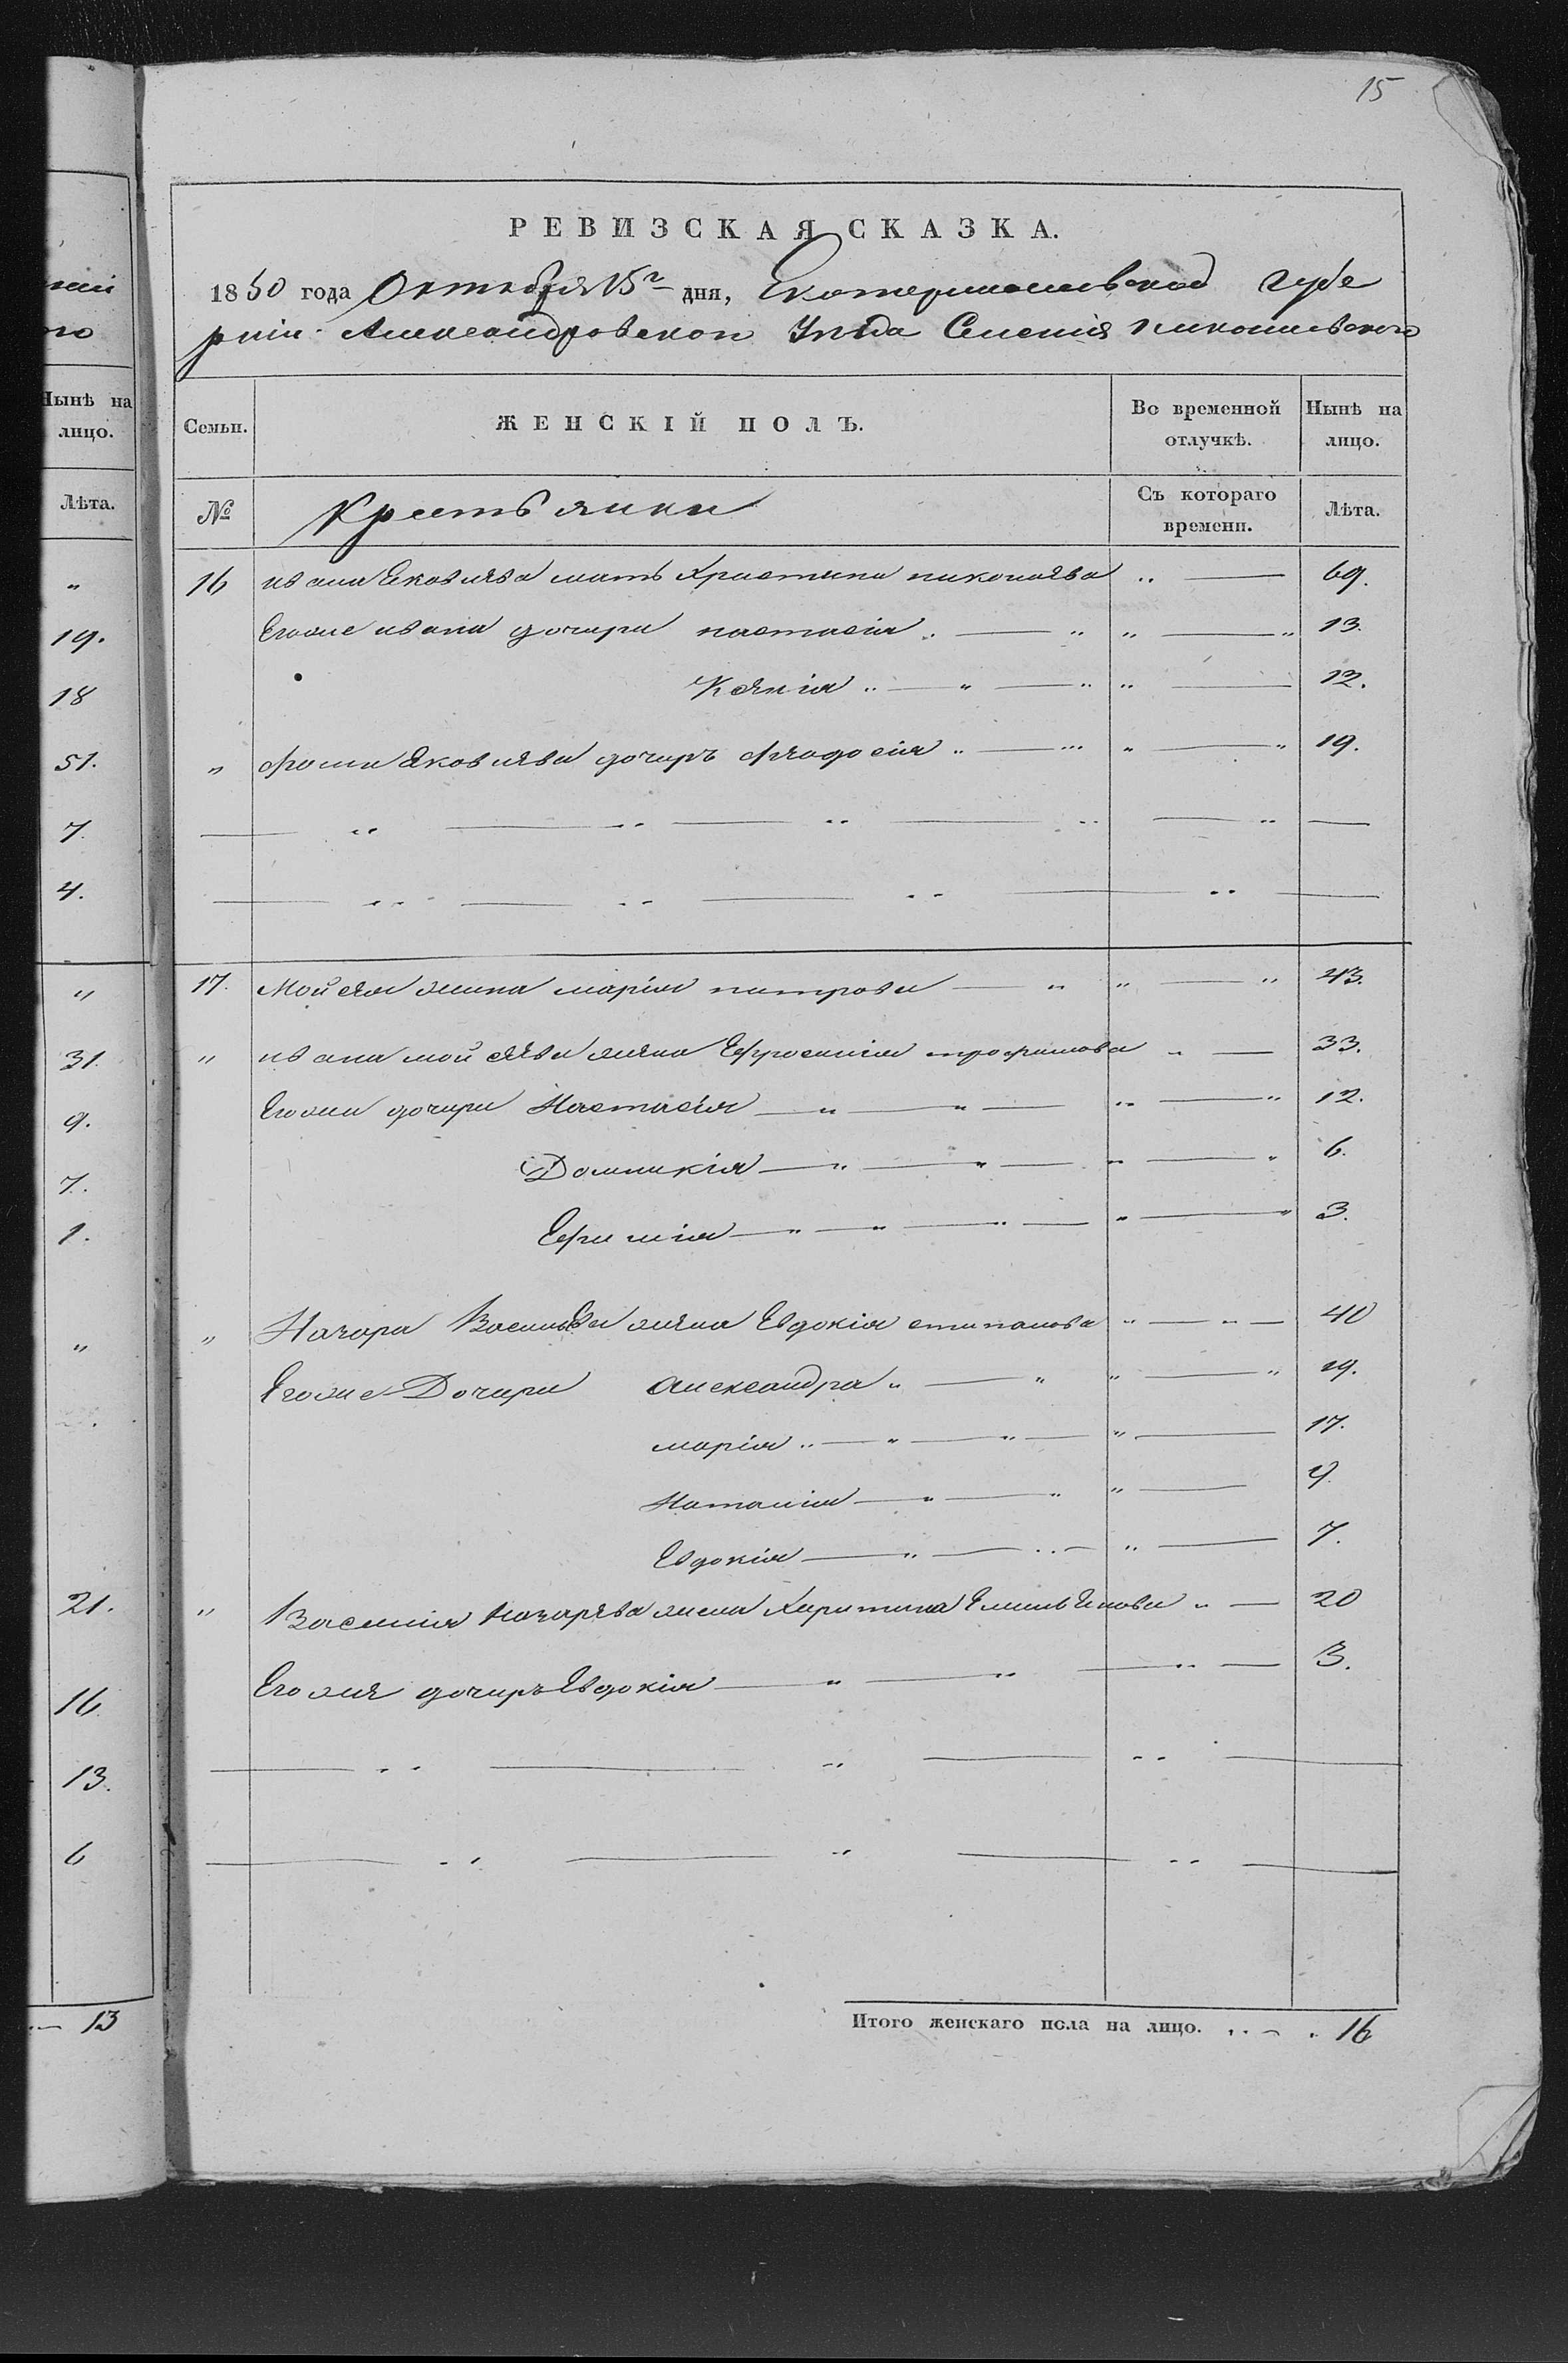 15
РЕВИЗСКАЯ СКАЗКА.
1850 года Октября 15го дня, Екатеринославской Губе
рніи Александровскои Уѣзда Селенія Николаевского
Семьи. ЖЕНСКІЙ ПОЛЪ. Во временной отлучкѣ. Нынѣ на лицо.
№ Крестьянки Съ котораго времени. Лѣта.
16 ивана Яковлява мать Христина николаява 69.
Егоже ивана дочери настасія 13.
Ксянія 12.
" фоми Яковлява дочиръ фядосія 19.
17. Мойсяя жина марія питрова 43.
" ивана мойсяява жяна Ефросинія трофимова 33.
Егожи дочири Настасія 12.
Домникія 6.
Ефимія 3.
" Назара Васильева жяна Евдокія стипанова 40
Егоже Дочири Александра 19.
марія 17.
Наталия 9.
Евдокія 7.
" Василия Назарява жена Харитина Емильянова 20
Егожя дочиръ Евдокія 3.
Итого женскаго пола на лицо. 16
Нынѣ на
лицо.
Лѣта.
"
19.
18
51.
7.
4.
"
31.
9.
7.
1.
"
21.
16.
13.
6
13